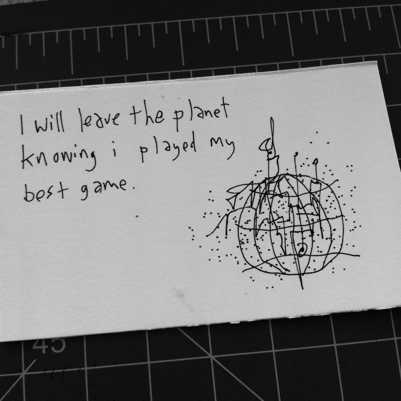 I will leave the planet
knowing i played my
best game.
45